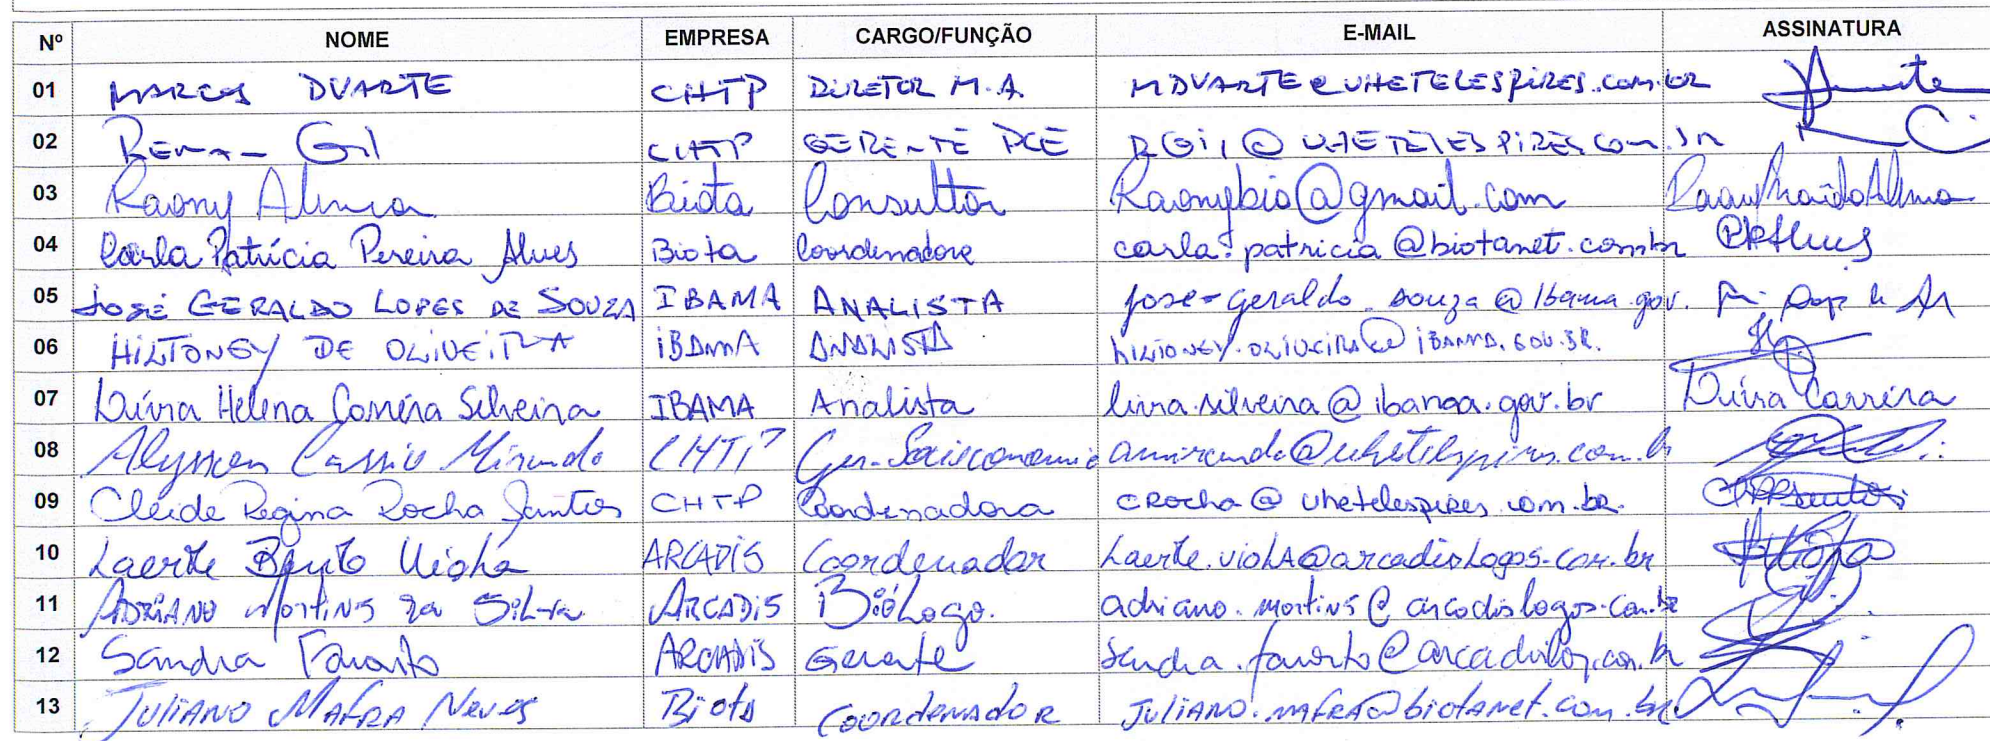 Nº NOME EMPRESA CARGO/FUNÇÃO E-MAIL ASSINATURA
01 MARCOS DUARTE CHTP DIRETOR M.A. MDUARTE@UHETELESPIRES.COM.BR
02 Renan Gil CHTP GERENTE PCE RGil@UHETELESPIRES.COM.BR
03 Raony Alenca Biota Consultor Raonybio@gmail.com
04 Carla Patrícia Pereira Alves Biota Coordenadora carla.patricia@biotanet.com.br
05 JOSÉ GERALDO LOPES DE SOUZA IBAMA ANALISTA jose-geraldo.souza@ibama.gov.
06 HILTONEY DE OLIVEIRA IBAMA ANALISTA HILTONEY.OLIVEIRA@IBAMA.GOV.BR.
07 Lívia Helena Carréra Silveira IBAMA Analista livia.silveira@ibama.gov.br Lívia Carréra
08 Alysson Cassio Miranda CHTP Ger. Socioeconomia amiranda@uhetelespires.com.b
09 Cleide Regina Rocha Santos CHTP Coordenadora CRocha@uhetelespires.com.br.
10 Laerte Bento Viola ARCADIS Coordenador Laerte.viola@arcadislogos.com.br
11 ADRIANO Martins da Silva ARCADIS Biólogo. adriano.martins@arcadislogos.com.br
12 Sandra Favorito ARCADIS Gerente sandra.favorito@arcadislogos.com.br
13 JULIANO MAFRA Neves Biota COORDENADOR JULIANO.MAFRA@biotanet.com.br